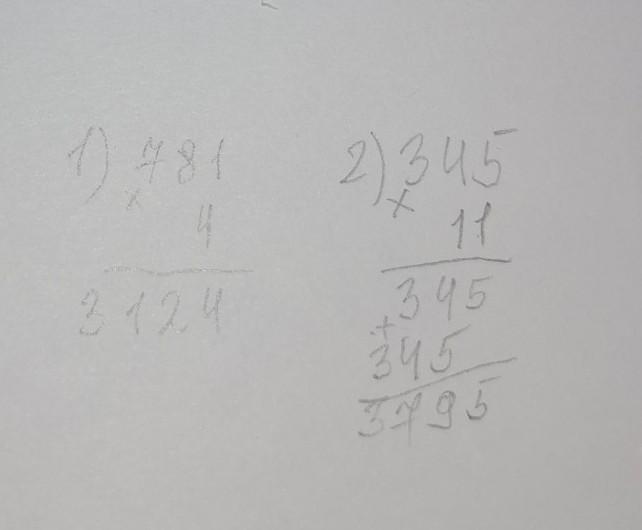 1) 781
×
4
3124
2) 345
×
11
345
+
345
3795